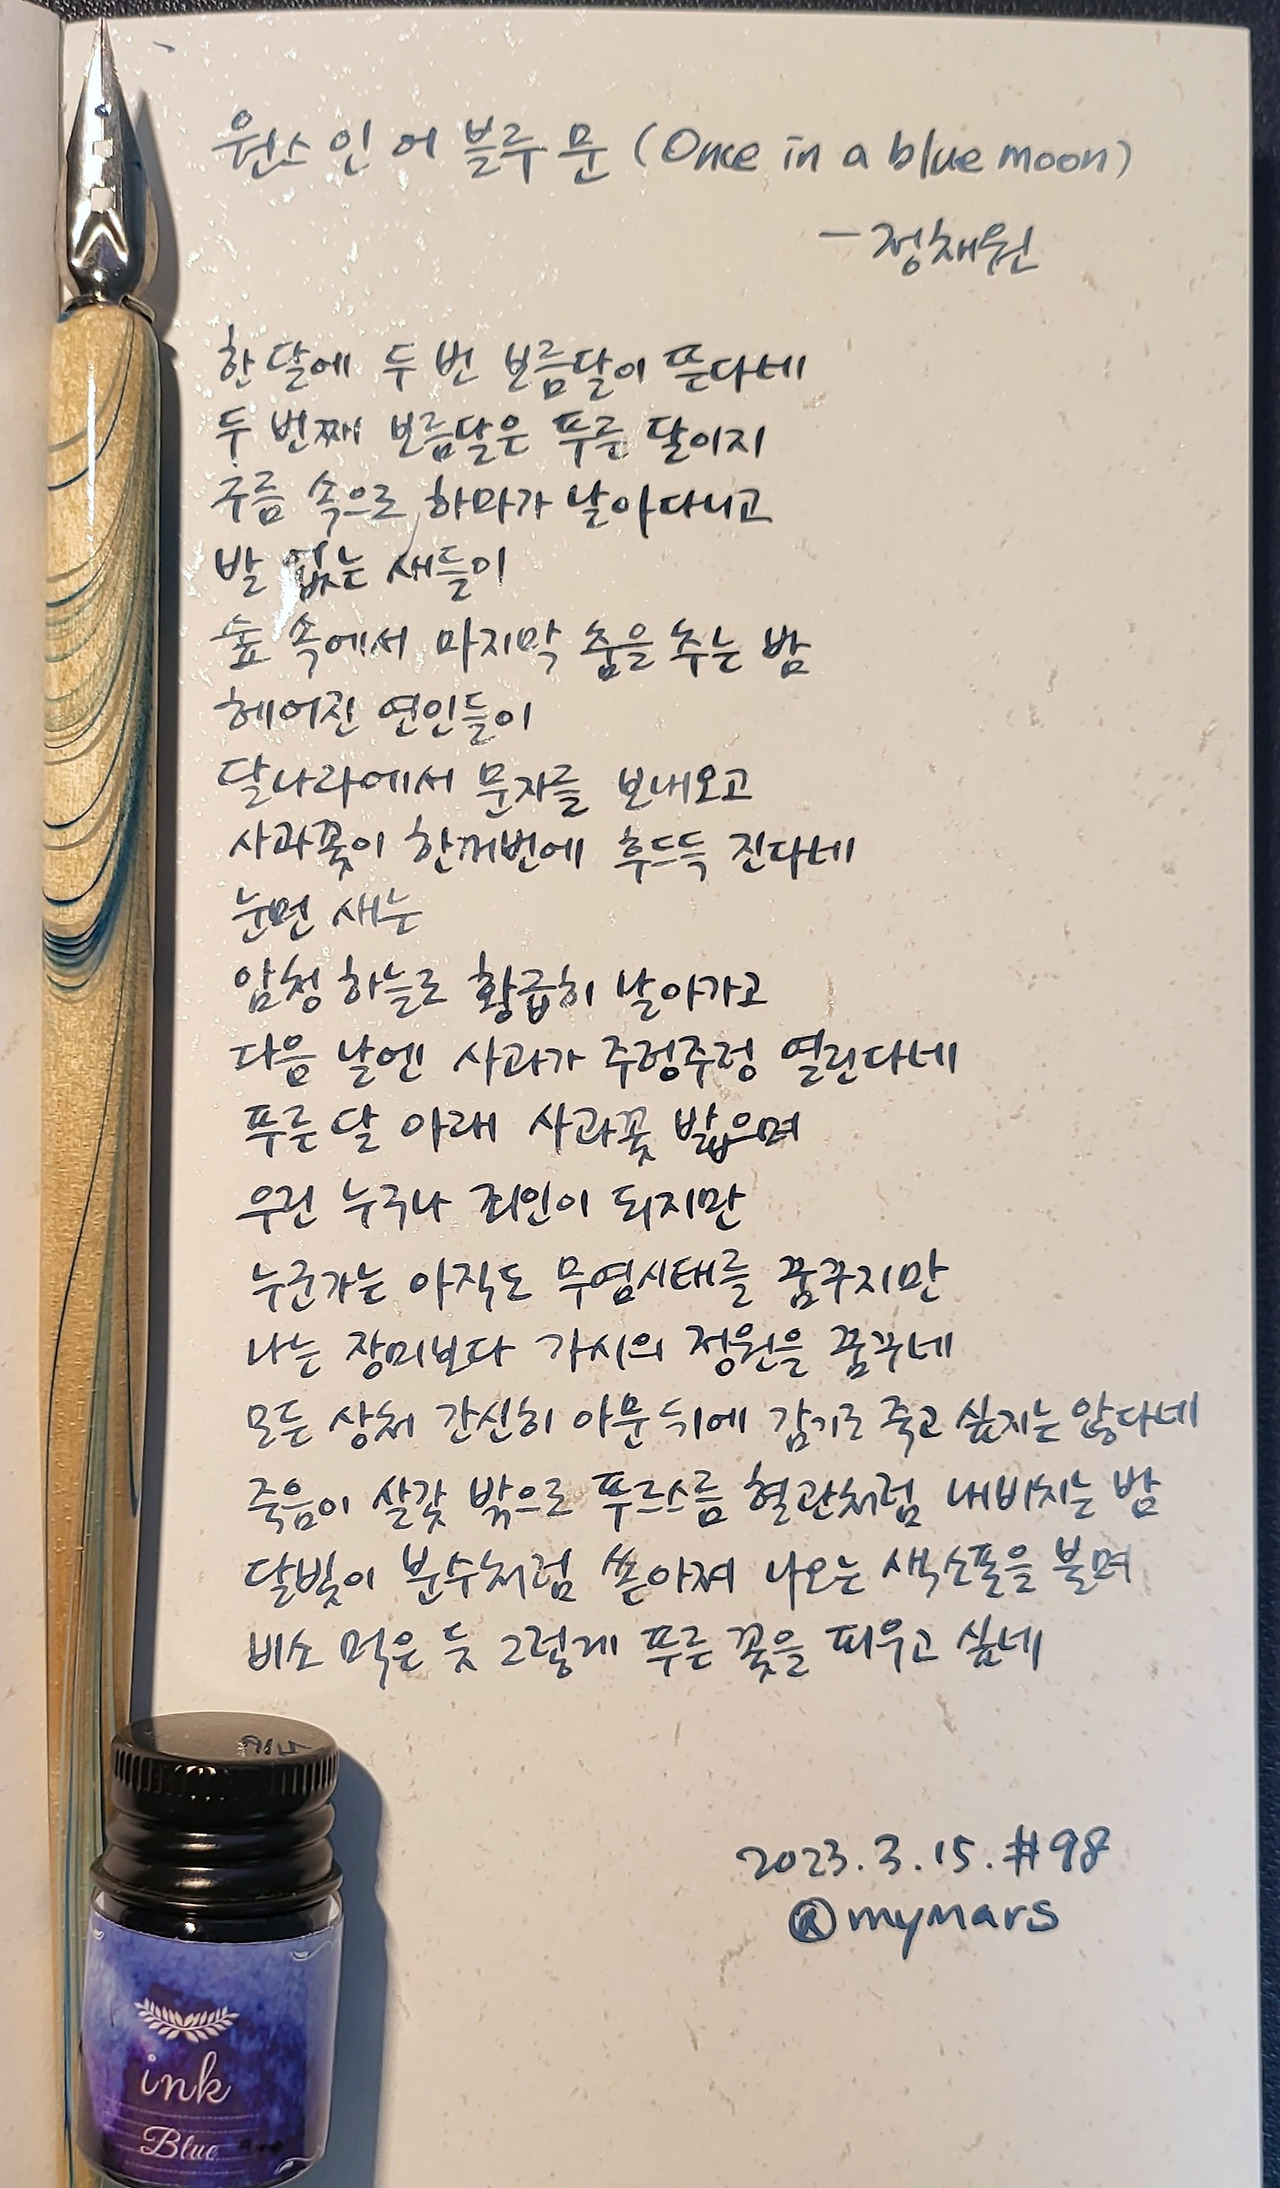 원스 인 어 블루 문 (Once in a blue moon)
- 정채원
한 달에 두 번 보름달이 뜬다네
두 번째 보름달은 푸른 달이지
구름 속으로 하마가 날아다니고
발 없는 새들이
숲 속에서 마지막 춤을 추는 밤
헤어진 연인들이
달나라에서 문자를 보내오고
사과꽃이 한꺼번에 후드득 진다네
눈먼 새는
암청 하늘로 황급히 날아가고
다음 날엔 사과가 주렁주렁 열린다네
푸른 달 아래 사과꽃 밟으며
우린 누구나 죄인이 되지만
누군가는 아직도 무염시태를 꿈꾸지만
나는 장미보다 가시의 정원을 꿈꾸네
모든 상처 간신히 아문 뒤에 감기로 죽고 싶지는 않다네
죽음이 살갗 밖으로 푸르스름 혈관처럼 내비치는 밤
달빛이 분수처럼 쏟아져 나오는 색소폰을 불며
비소 먹은 듯 그렇게 푸른 꽃을 피우고 싶네
2023.3.15.#98
@mymars
ink
Blue